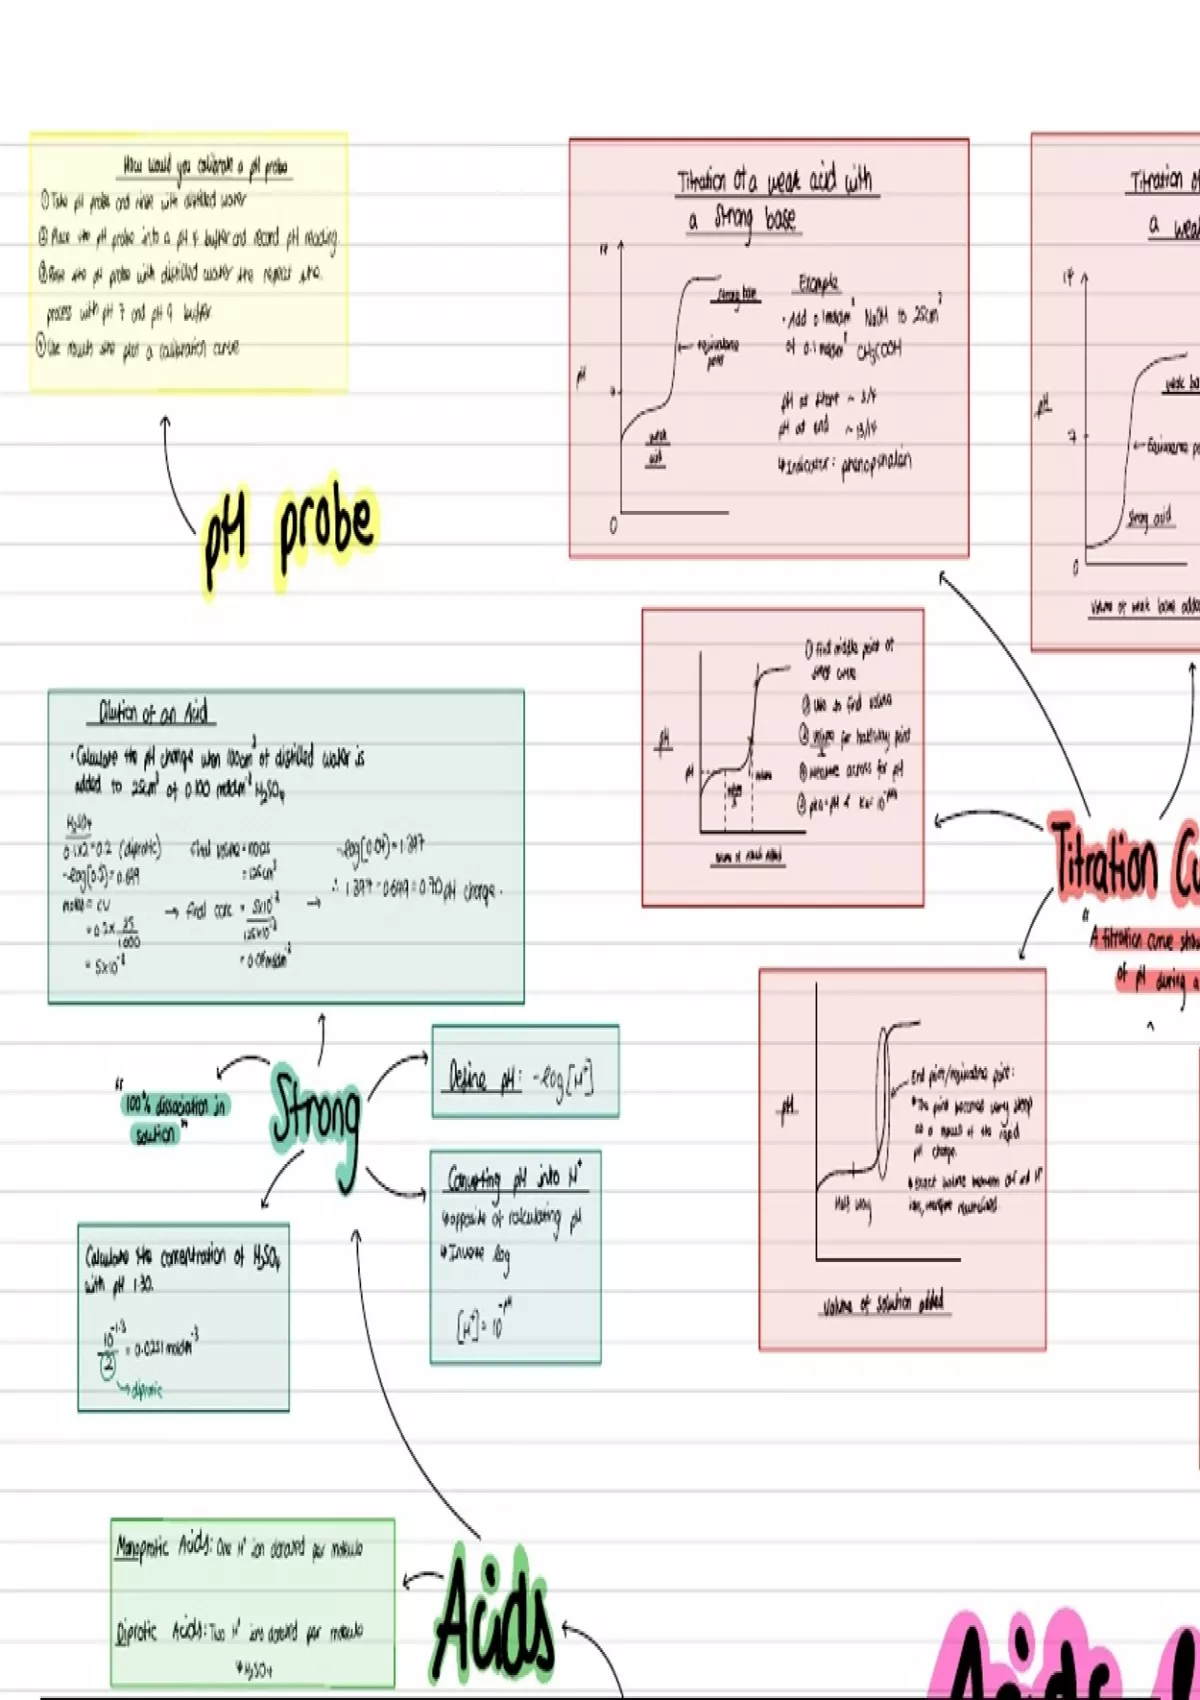 How would you calibrate a pH probe
① Take pH probe and rinse with distilled water
② Place the pH probe into a pH 4 buffer and record pH reading.
③ Rinse the pH probe with distilled water the repeat the
process with pH 7 and pH 9 buffer
④ Use results the plot a calibration curve
pH probe
Titration of a weak acid with
a strong base
14
pH
7
0
strong base
equivalence
point
weak
acid
Example
· Add 0.1moldm⁻³ NaOH to 25cm³
of 0.1moldm⁻³ CH₃COOH
pH at start ~ 3/4
pH at end ~ 13/14
↳ Indicator: phenopthalein
Titration of
a weak
14
pH
7
0
weak ba
Equivalence po
strong acid
Volume of weak base adde
① Find middle point of
steep curve
② Use to find volume
③ volume/2 for halfway point
④ Measure across for pH
⑤ pKa=pH & Ka=10⁻ᵖᴴ
pH
pH
volume
2
volume
Dilution of an Acid
· Calculate the pH change when 100cm³ of distilled water is
added to 25cm³ of 0.100 moldm⁻³ H₂SO₄
H₂SO₄
0.1x2=0.2 (diprotic)
-log[0.2]=0.699
moles = CV
= 0.2 x 25/1000
= 5x10⁻³
final volume = 100+25
= 125cm³
→ final conc. = 5x10⁻³/125x10⁻³
= 0.04moldm⁻³
→
-log[0.04]=1.397
∴ 1.397-0.699=0.70 pH change.
Titration Cu
"A titration curve sho
of pH during a
Strong
"100% dissociation in
solution"
Define pH: -log[H⁺]
Converting pH into H⁺
↳ opposite of calculating pH
↳ Inverse log
[H⁺]=10⁻ᵖᴴ
Calculate the concentration of H₂SO₄
with pH 1.30.
10⁻¹·³/2 = 0.0251 moldm⁻³
→ diprotic
pH
Half way
End point/equivalence point:
* The point becomes very steep
as a result of the rapid
pH change.
* Exact volume between OH⁻ and H⁺
ions, therefore neutralised.
Volume of solution added
Monoprotic Acids: One H⁺ ion donated per molecule
Diprotic Acids: Two H⁺ ions donated per molecule
↳ H₂SO₄
Acids
Acids